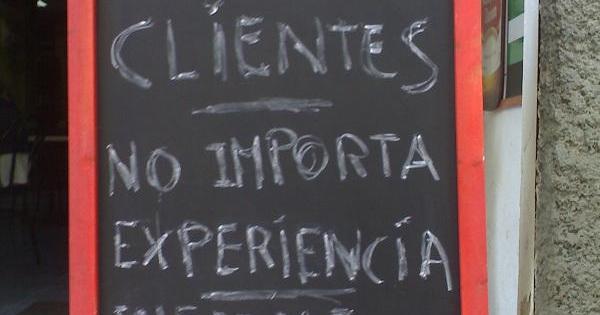 CLIENTES
NO IMPORTA
EXPERIENCIA